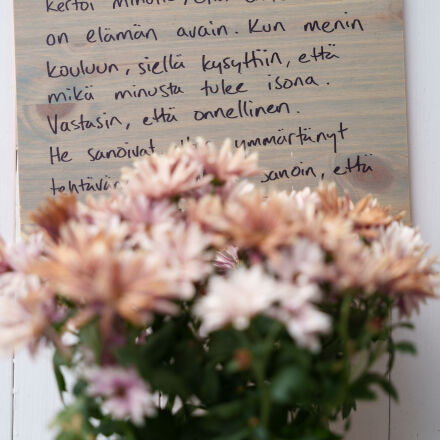 kertoi minulle, että
on elämän avain. Kun menin
kouluun, siellä kysyttiin, että
mikä minusta tulee isona.
Vastasin, että onnellinen.
He sanoivat ymmärtänyt
sanoin, että